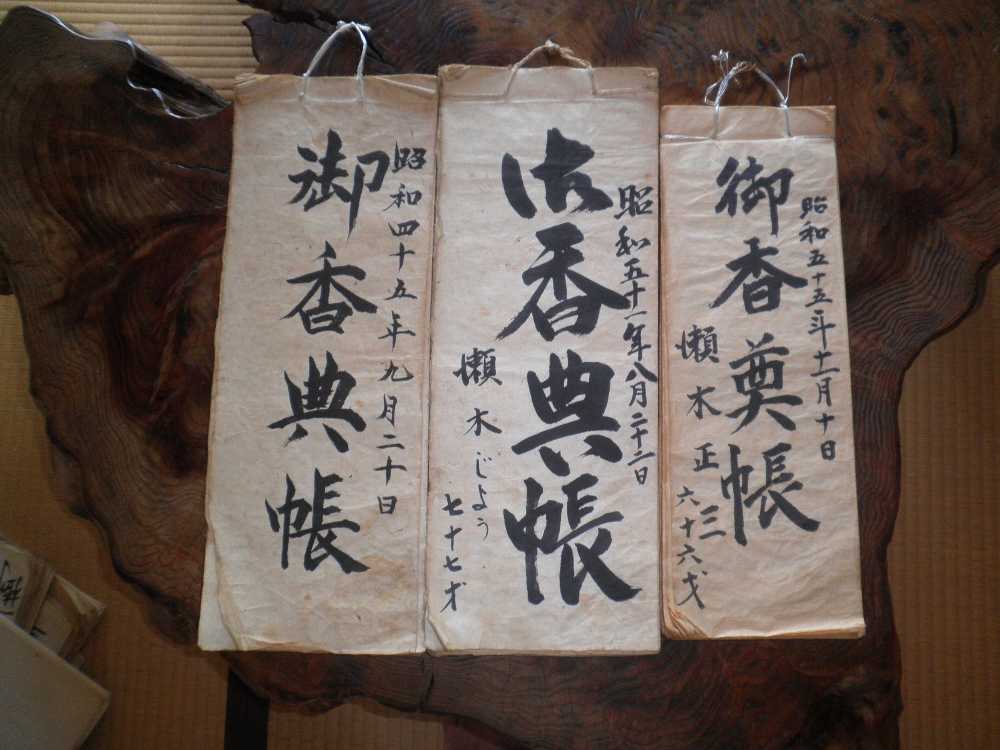 昭和四十五年九月二十日
御香典帳
昭和五十一年八月二十二日
御香典帳
瀬木じよう
七十七才
昭和五十五年十二月十日
御香奠帳
瀬木正三
六十六才